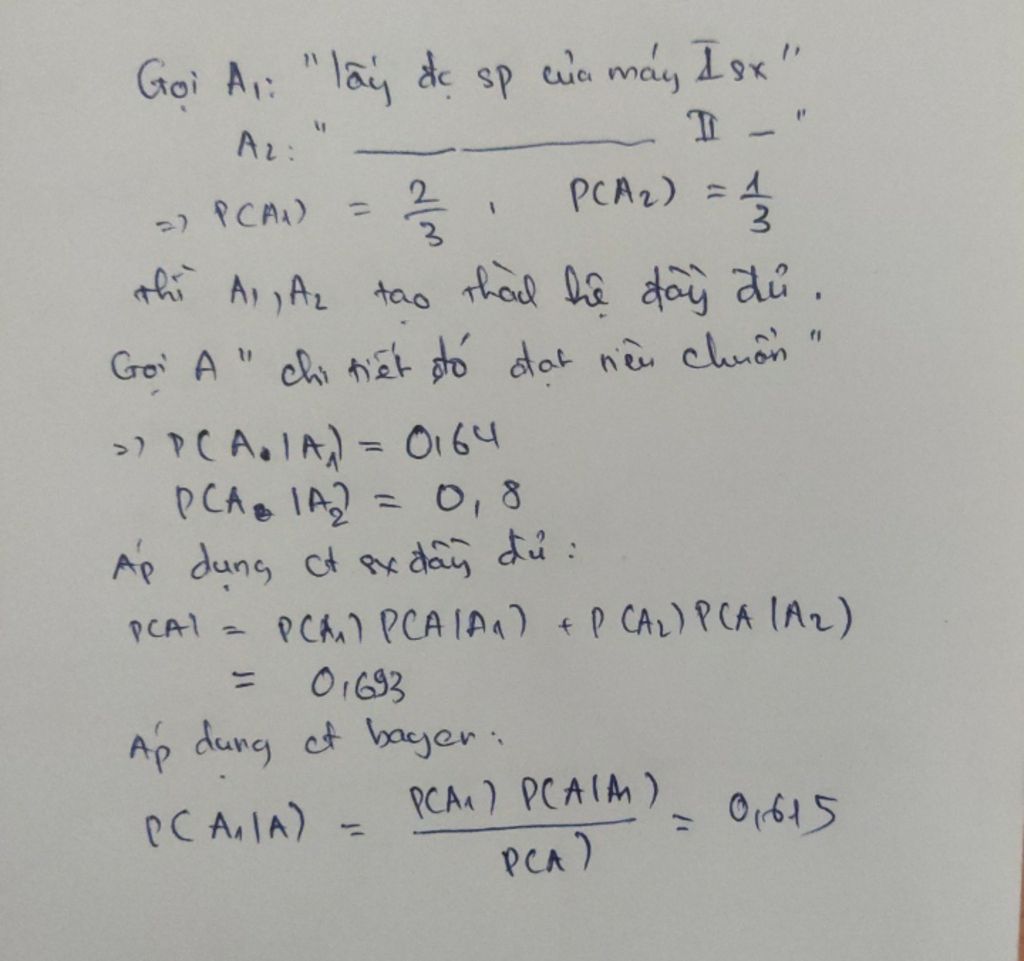 Gọi A₁: "lấy đc sp của máy I sx"
A₂: " ——— ——— II – "
=> P(A₁) = 2/3 , P(A₂) = 1/3
thì A₁, A₂ tạo thành hệ đầy đủ.
Gọi A " chi tiết đó đạt tiêu chuẩn "
=> P(A|A₁) = 0,64
P(A|A₂) = 0,8
Áp dụng ct sx đầy đủ :
P(A) = P(A₁) P(A|A₁) + P(A₂) P(A|A₂)
= 0,693
Áp dụng ct bayer :
P(A₁|A) = P(A₁) P(A|A₁) / P(A) = 0,615